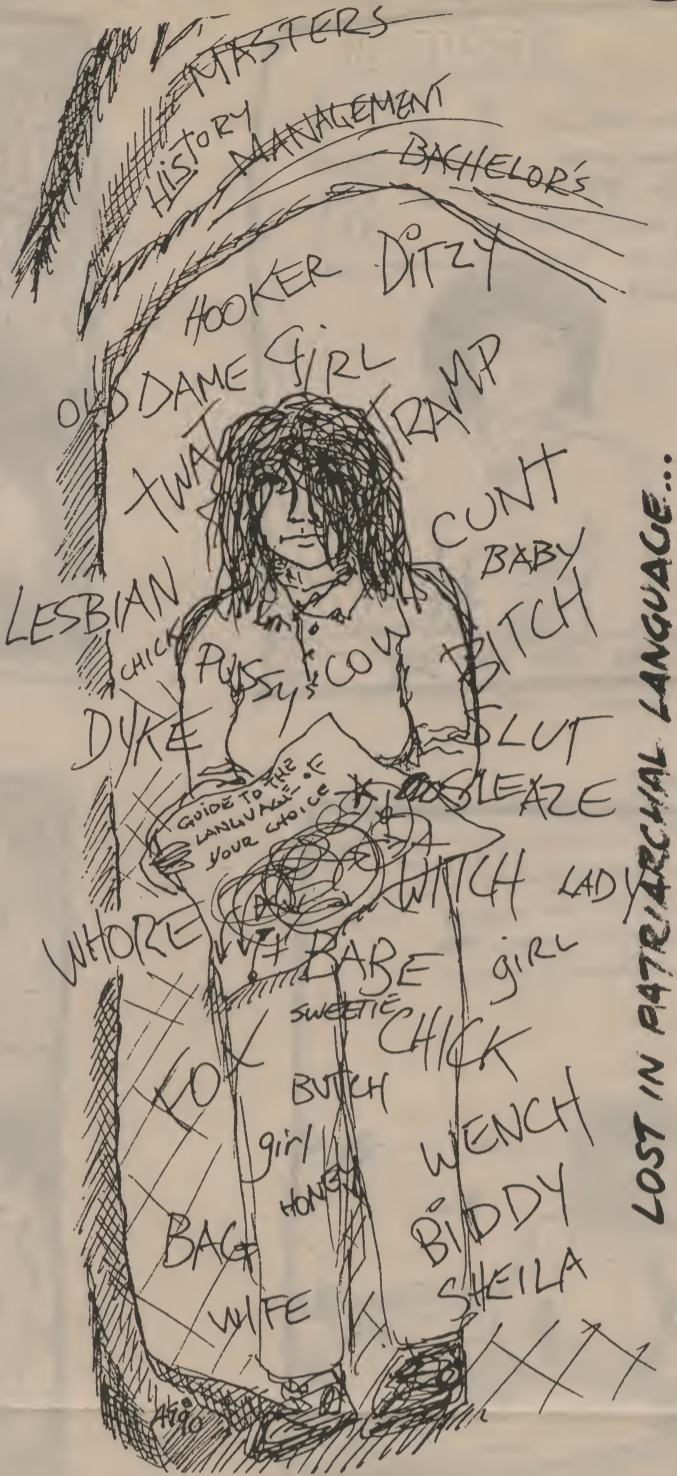 MASTERS
HISTORY
MANAGEMENT
BACHELOR'S
HOOKER
DITZY
OLD DAME
GIRL
TRAMP
TWAT
CUNT
BABY
LESBIAN
CHICK
PUSSY
COW
BITCH
DYKE
SLUT
GUIDE TO THE
LANGUAGE OF
YOUR CHOICE
SLEAZE
WITCH
LADY
WHORE
BABE
giRL
SWEETIE
CHICK
FOX
BUTCH
girl
WENCH
HONEY
BAG
BIDDY
WIFE
SHEILA
LOST IN PATRIARCHAL LANGUAGE...